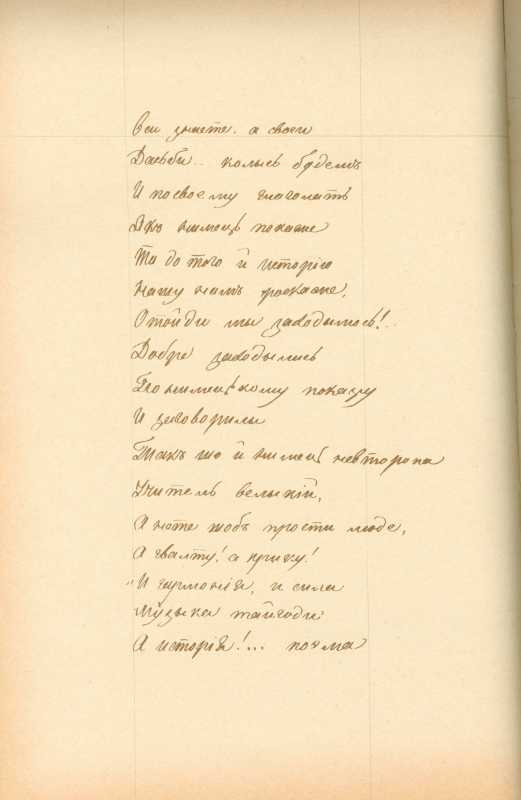 Вси знаете. а своеи
Дасьби.. колысь будемъ
И посвоему глаголать
Якъ нимець покаже
То до того й исторію
Нашу намъ роскаже,
Отойди мы заходымось!..
Добре заходылись
По нимецькому показу
И заговорили
Такъ що й нимець невторопа
Учитель велыкій,
А неже щобъ прости люде,
А гвалту! а крику!
"И гармонія, и сила
Музыка тайгоди
А исторія!... поэма